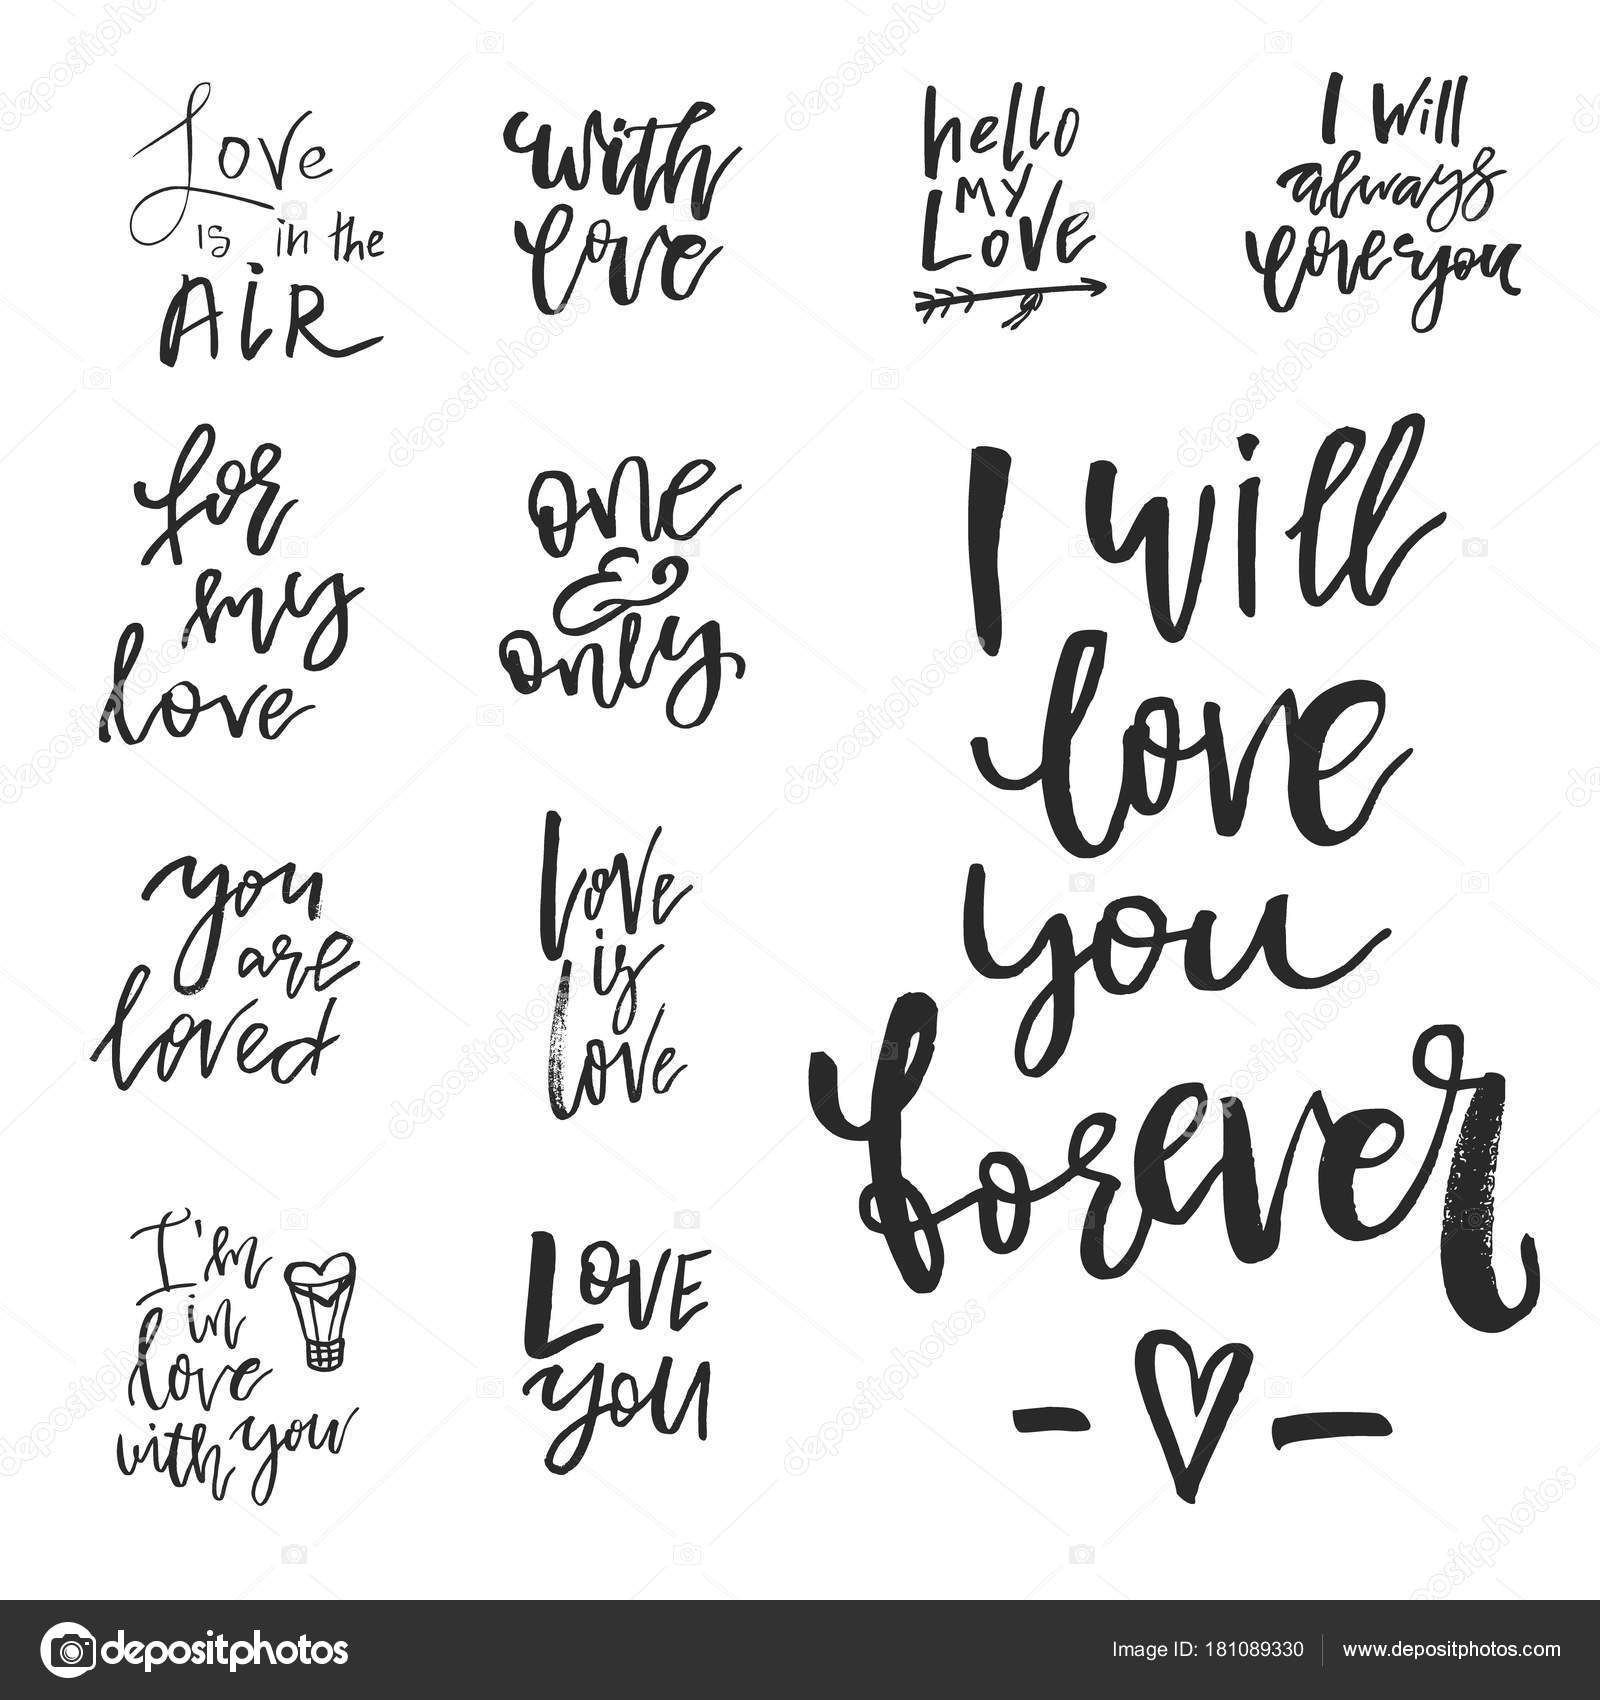 Love
is in the
AiR
with
love
hello
my
Love
I will
always
love you
for
my
love
one
&
only
I will
love
you
forever
you
are
loved
Love
is
love
I'm
in
love
with you
LOVE
you
depositphotos
Image ID: 181089330
www.depositphotos.com